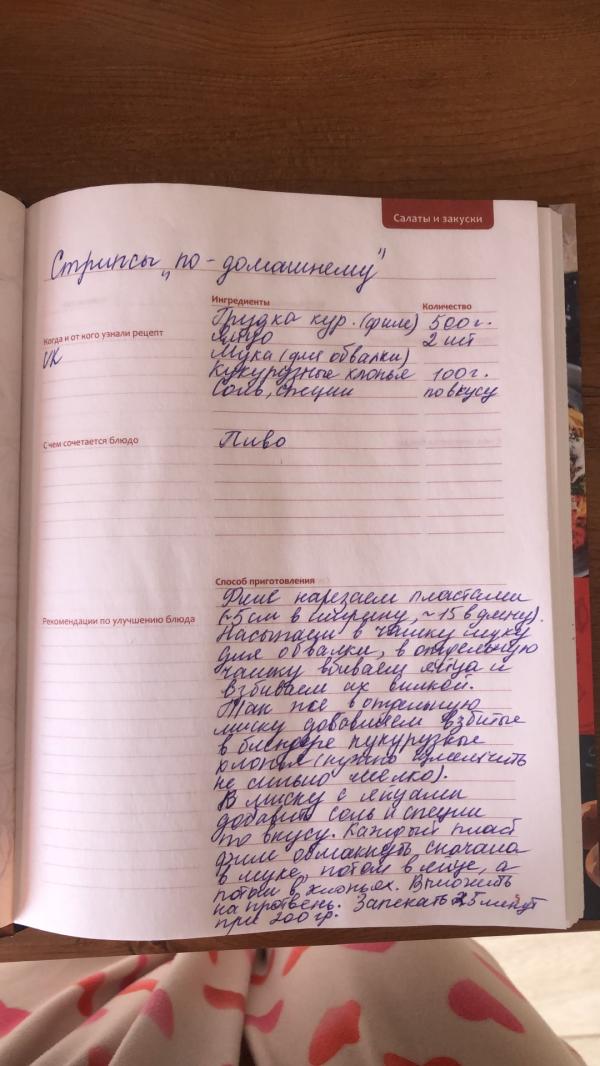 Салаты и закуски
Стрипсы „по-домашнему"
Ингредиенты
Количество
Грудка кур. (филе) 500 г.
Когда и от кого узнали рецепт
яйцо 2 шт
VK
Мука (для обвалки)
Кукурузные хлопья 100 г.
Соль, специи по вкусу
С чем сочетается блюдо
Пиво
Способ приготовления
Рекомендации по улучшению блюда
Филе нарезаем пластами
(~5 см в ширину, ~15 в длину).
Насыпаем в чашку муку
для обвалки, в отдельную
чашку вбиваем яйца и
взбиваем их вилкой.
Так же в отдельную
миску добавляем взбитые
в блендере кукурузные
хлопья (нужно измельчить
не сильно мелко).
В миску с яйцами
добавить соль и специи
по вкусу. Каждый пласт
филе обмакнуть сначала
в муке, потом в яйце, а
потом в хлопьях. Выложить
на противень. Запекать 25 минут
при 200 гр.